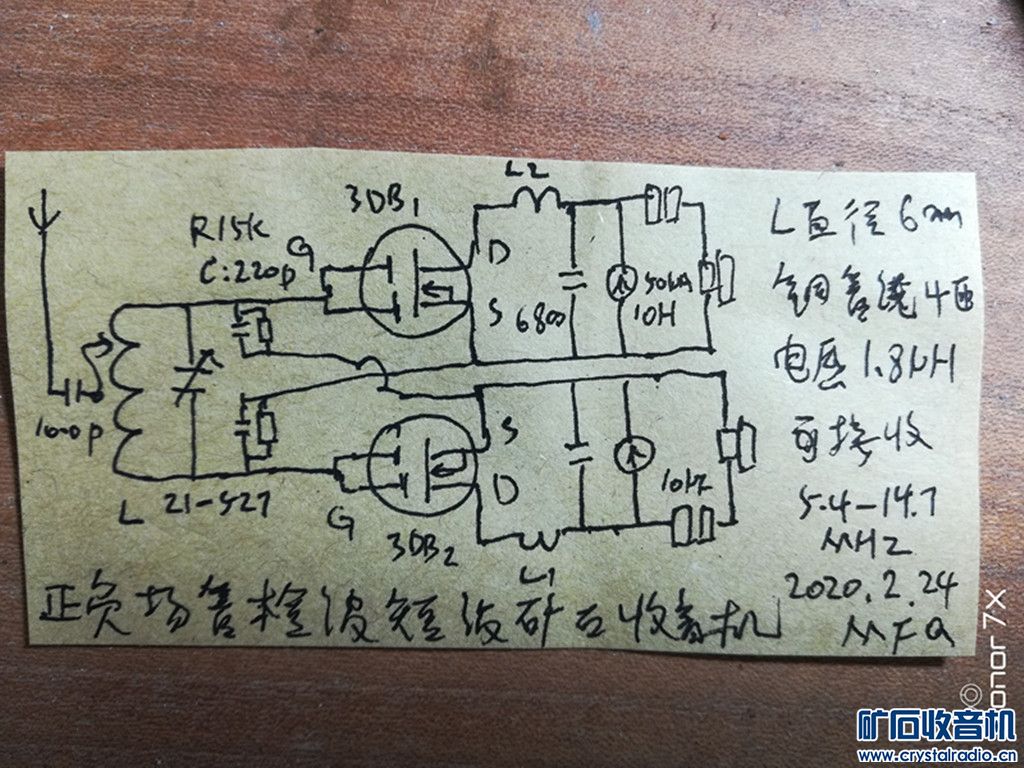 L2
3DB1
R15K
C:220p
G
D
S
6800
50uA
10H
1000p
L
21-527
G
3DB2
S
D
10Hz
L1
L直径6mm
铜管绕4匝
电感1.8μH
可接收
5.4-14.7
MHZ
2020.2.24
MFQ
正负场管检波短波矿石收音机
honor 7X
矿石收音机
www.crystalradio.cn